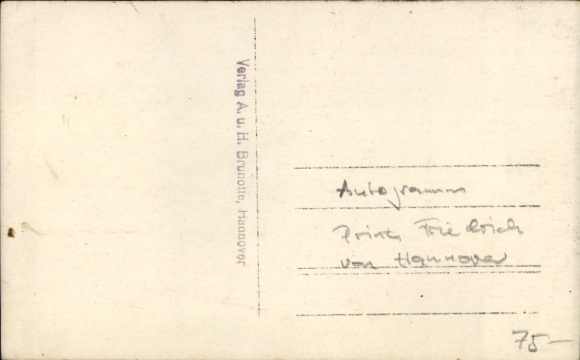 Verlag A. u. H. Brunotte, Hannover
Autogramm
Prinz Friedrich
von Hannover
75-